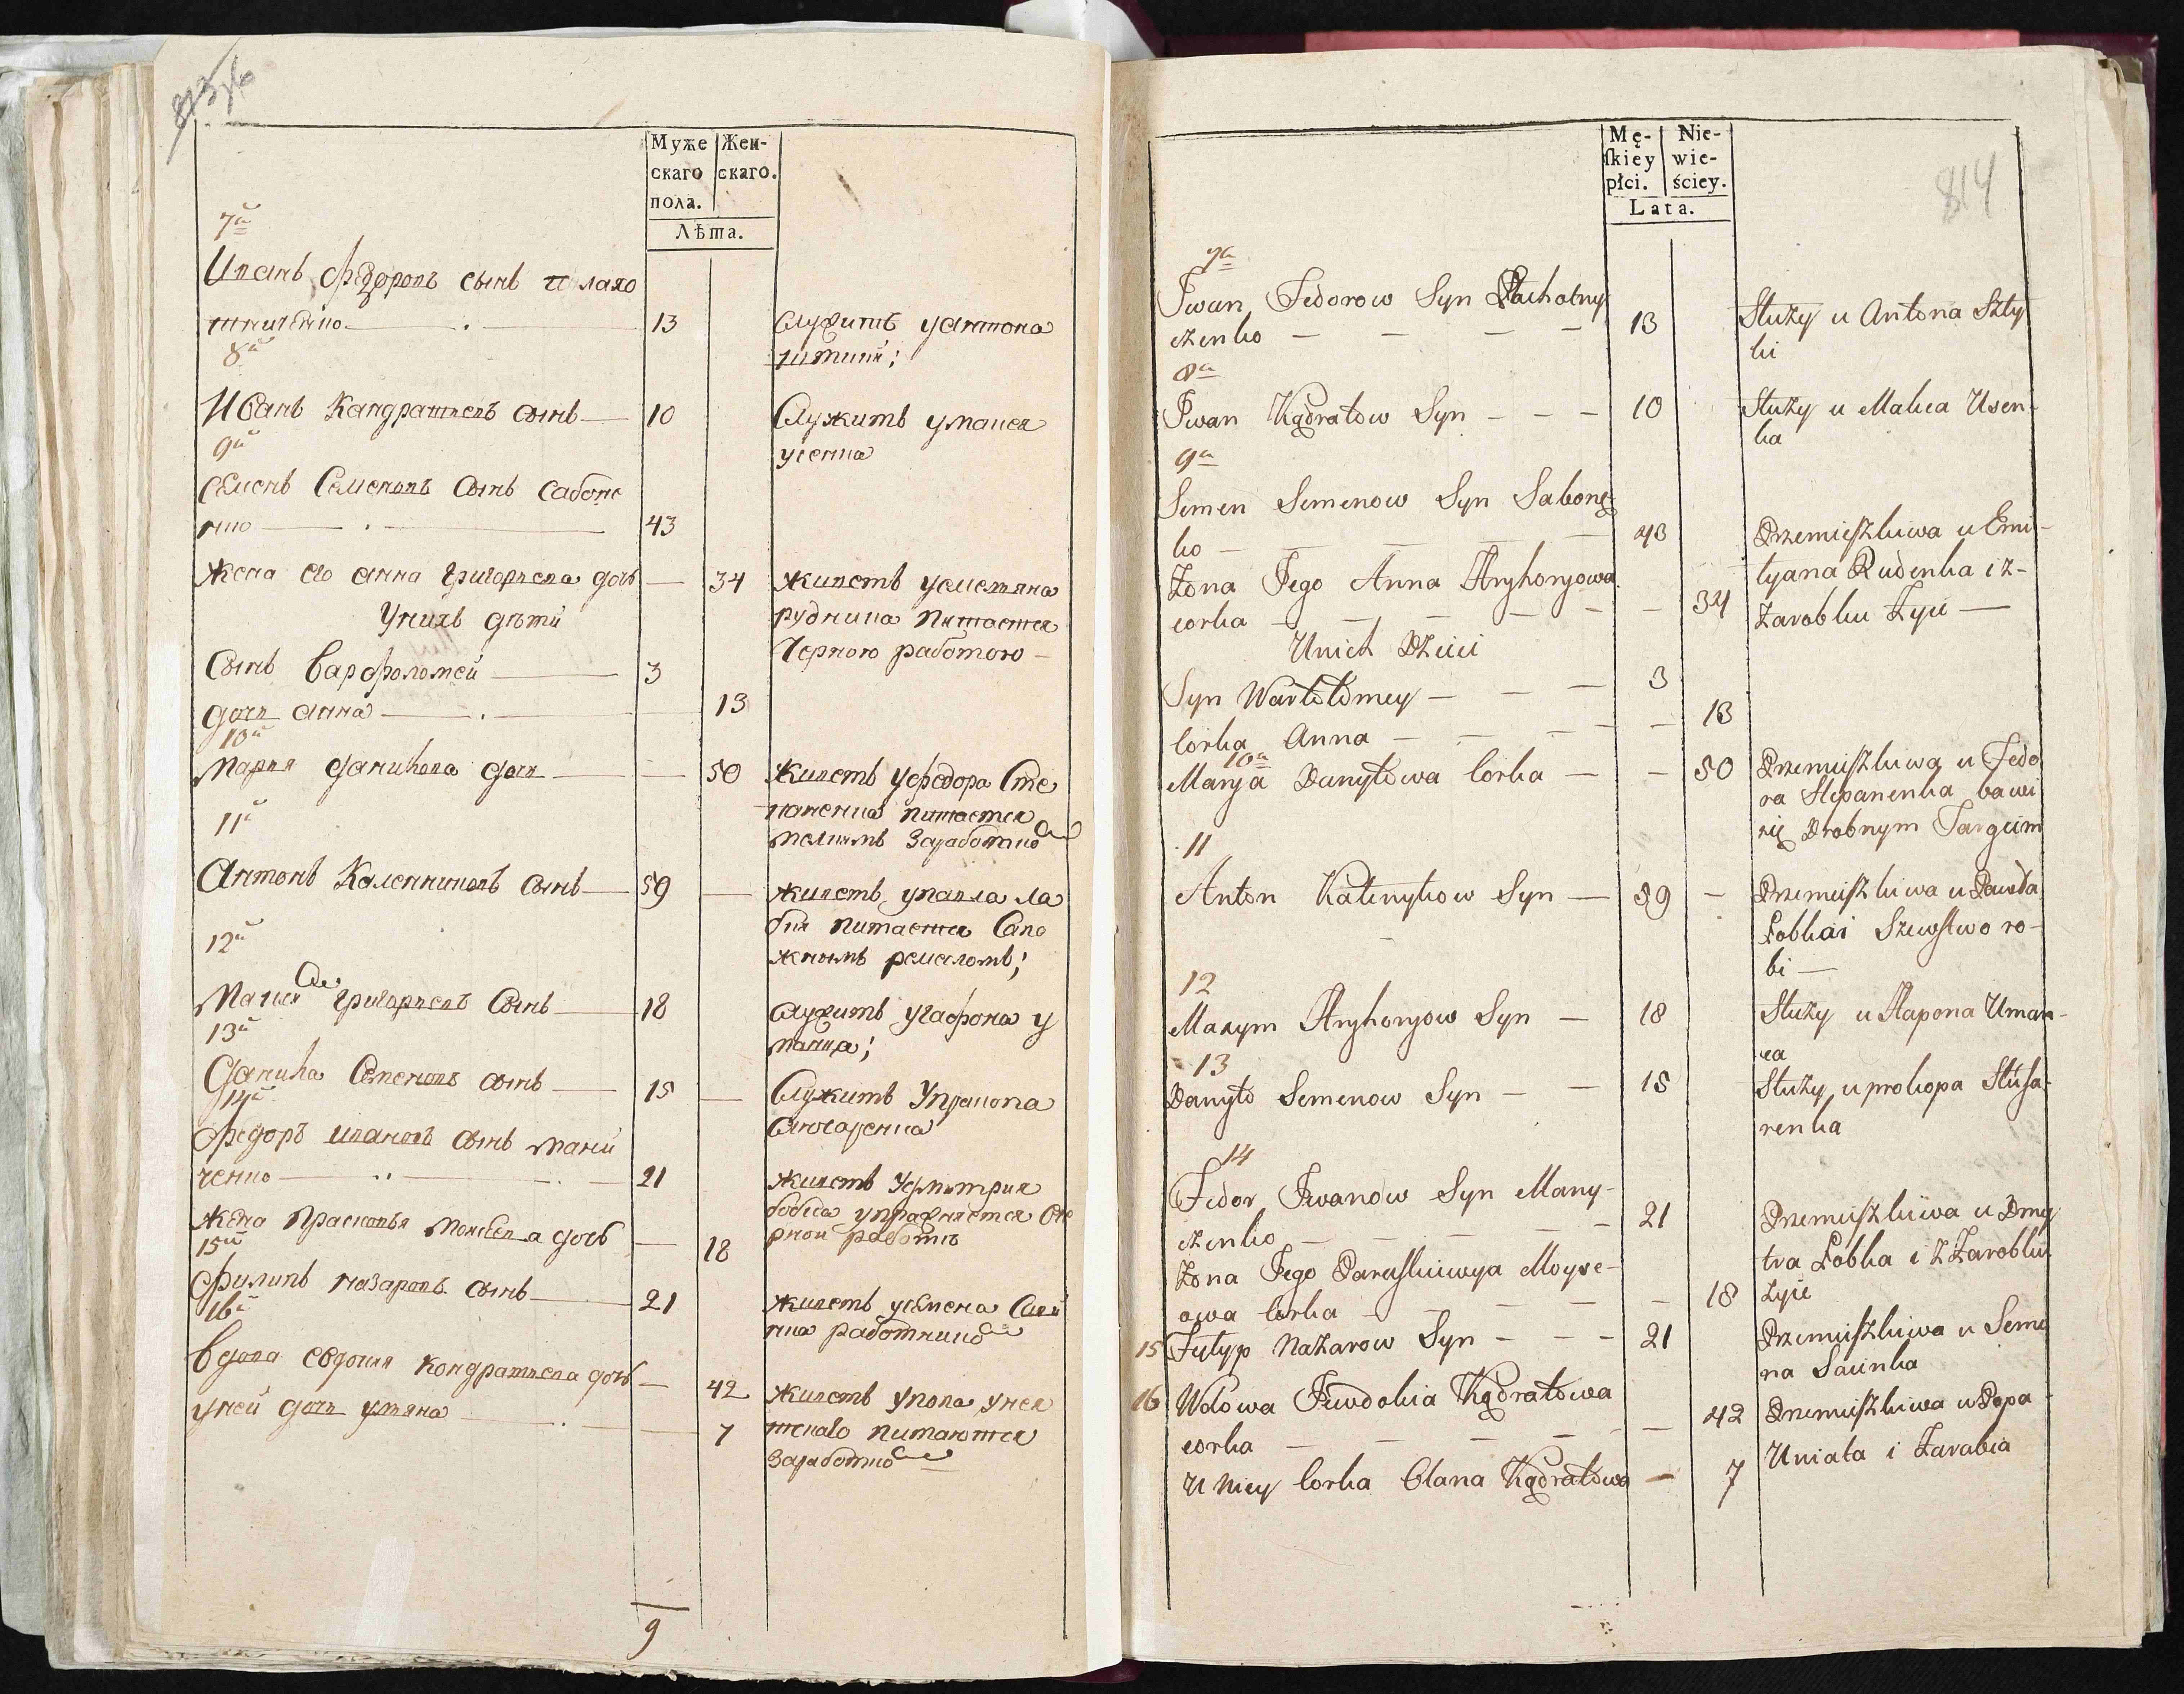 Муже
скаго
пола.
Жен-
скаго.
Лѣта.
7й
Иванъ Федоровъ сынъ Полахо
тниченко 13 служитъ у Антона
8й
Иванъ Кандратьевъ сынъ 10 Служитъ у
9й
Семенъ Семеновъ сынъ Сабоне
нко 43
жена его анна Григорьева дочь 34 живетъ у емельяна
у нихъ дѣти
руденка питается
Черною работою
Сынъ Варфоломей 3
дочь анна 13
10й
Мария данилова дочь 50 живетъ у федора Сте
паненка питается
11й
Антонъ Каленниковъ сынъ 59 живетъ у павла ла
питается Сапо
жнымъ ремесломъ;
12й
Григорьевъ Сынъ 18 служитъ у гафона у
манца;
13й
Данила Семеновъ сынъ 15 Служитъ У прокопа
Слюсаренка
14й
Федоръ ивановъ сынъ мани
ченко 21 живетъ у дмитрия
жена Прасковья дочь 18
15й
Филипъ назаровъ сынъ 21 живетъ у семена
16й
Вдова евдокия кондратьева дочь 42 живетъ у попа уния
у ней дочь уляна 7 питаются
9
Mę-
skiey
płci.
Nie-
wie-
ściey.
Lata.
814
7a
Jwan Fedorow Syn Płachotny
czenko 13 Służy u Antona Szty
ki
8a
Jwan Kądratow Syn 10 Służy u Usen-
ka
9a
Semen Semenow Syn Sabonę
ko 43 Przemieszkiwa u Emi-
Żona Jego Anna Hryhoryowa
corka 34
lyana Rudenka i z
Zarobku Żyie
Unich Dzieci
Syn Wartołomey 3
Corka Anna 13
10a
Marya Danyłowa Corka 50 Przemieszkiwa u Fedo
ra Stepanenka bawi
się Drobnym Targiem
11
Anton Kalenykow Syn 59 Przemieszkiwa u Pawła
Łobkai Szewstwo ro-
bi
12
Maxym Hryhoryow Syn 18 Służy u Hapona Uman-
ca
13
Danyło Semenow Syn 15 Służy u prokopa Slusa-
renka
14
Fedor Jwanow Syn Many-
czenko 21 Przemieszkiwa u Dmy
tra Łobka i z Zarobku
Żyie
Żona Jego Paraskiewya Moyse-
owa Corka 18
15 Fylyp Nazarow Syn 21 Przemieszkiwa u Seme
na Saienka
16 Wdowa Jewdokia Kądratowa
corka 42 Przemieszkiwa u Popa
Uniata i Zarabia
U Niey Corka Olana Kądratowa 7